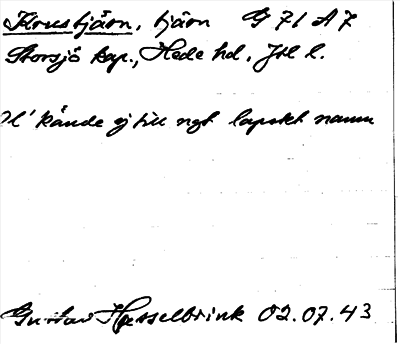 Krustjärn, tjärn G 71 A 7
Storsjö kap., Hede hd, Jtl l.
kände ej till ngt lapskt namn
Gustav Hasselbrink 02.07.43